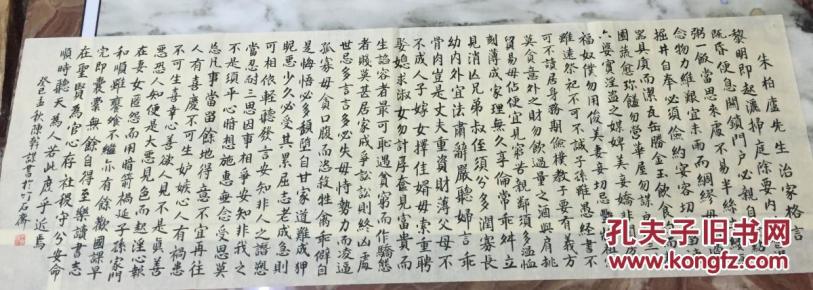 朱柏廬先生治家格言
黎明即起灑掃庭除要內外整潔
既昏便息關鎖門戶必親自檢點一
粥一飯當思來處不易半絲半縷恒
念物力維艱宜未雨而綢繆毋臨渴
掘井自奉必須儉約宴客切勿留連
器具質而潔瓦缶勝金玉飲食
園蔬愈珍饈勿營華屋勿謀良田三姑
六婆實淫盜之媒婢美妾嬌非閨房之
福奴僕勿用俊美妻妾切忌艷妝祖宗
雖遠祭祀不可不誠子孫雖愚經書不
可不讀居身務期儉樸教子要有義方
莫貪意外之財勿飲過量之酒與肩挑
貿易毋佔便宜見窮苦親鄰須多溫恤
刻薄成家理無久享倫常乖舛立
見消亡兄弟叔侄須分多潤寡長
幼內外宜法肅辭嚴聽婦言乖
骨肉豈是丈夫重資財薄父母不
成人子嫁女擇佳婿毋索重聘
娶媳求淑女勿計厚奩見富貴而
生諂容者最可恥遇貧窮而作驕態
者賤莫甚居家戒爭訟訟則終凶處
世忌多言言多必失毋恃勢力而凌逼
孤寡毋貪口腹而恣殺牲禽乖僻自
是悔悟必多頹墮自甘家道難成狎
昵惡少久必受其累屈志老成急則
可相依輕聽發言安知非人之譖愬
當忍耐三思因事相爭安知非我之
不是須平心暗想施惠無念受恩莫
忘凡事當留餘地得意不宜再往
人有喜慶不可生妒嫉心人有禍患
不可生喜幸心善欲人見不是真善
惡恐人知便是大惡見色而起淫心報
在妻女匿怨而用暗箭禍延子孫家門
和順雖饔飧不繼亦有餘歡國課早
完即囊橐無餘自得至樂讀書志
在聖賢為官心存社稷守分安命
順時聽天為人若此庶乎近焉
癸巳孟秋陳
孔夫子旧书网
KONGFZ.COM